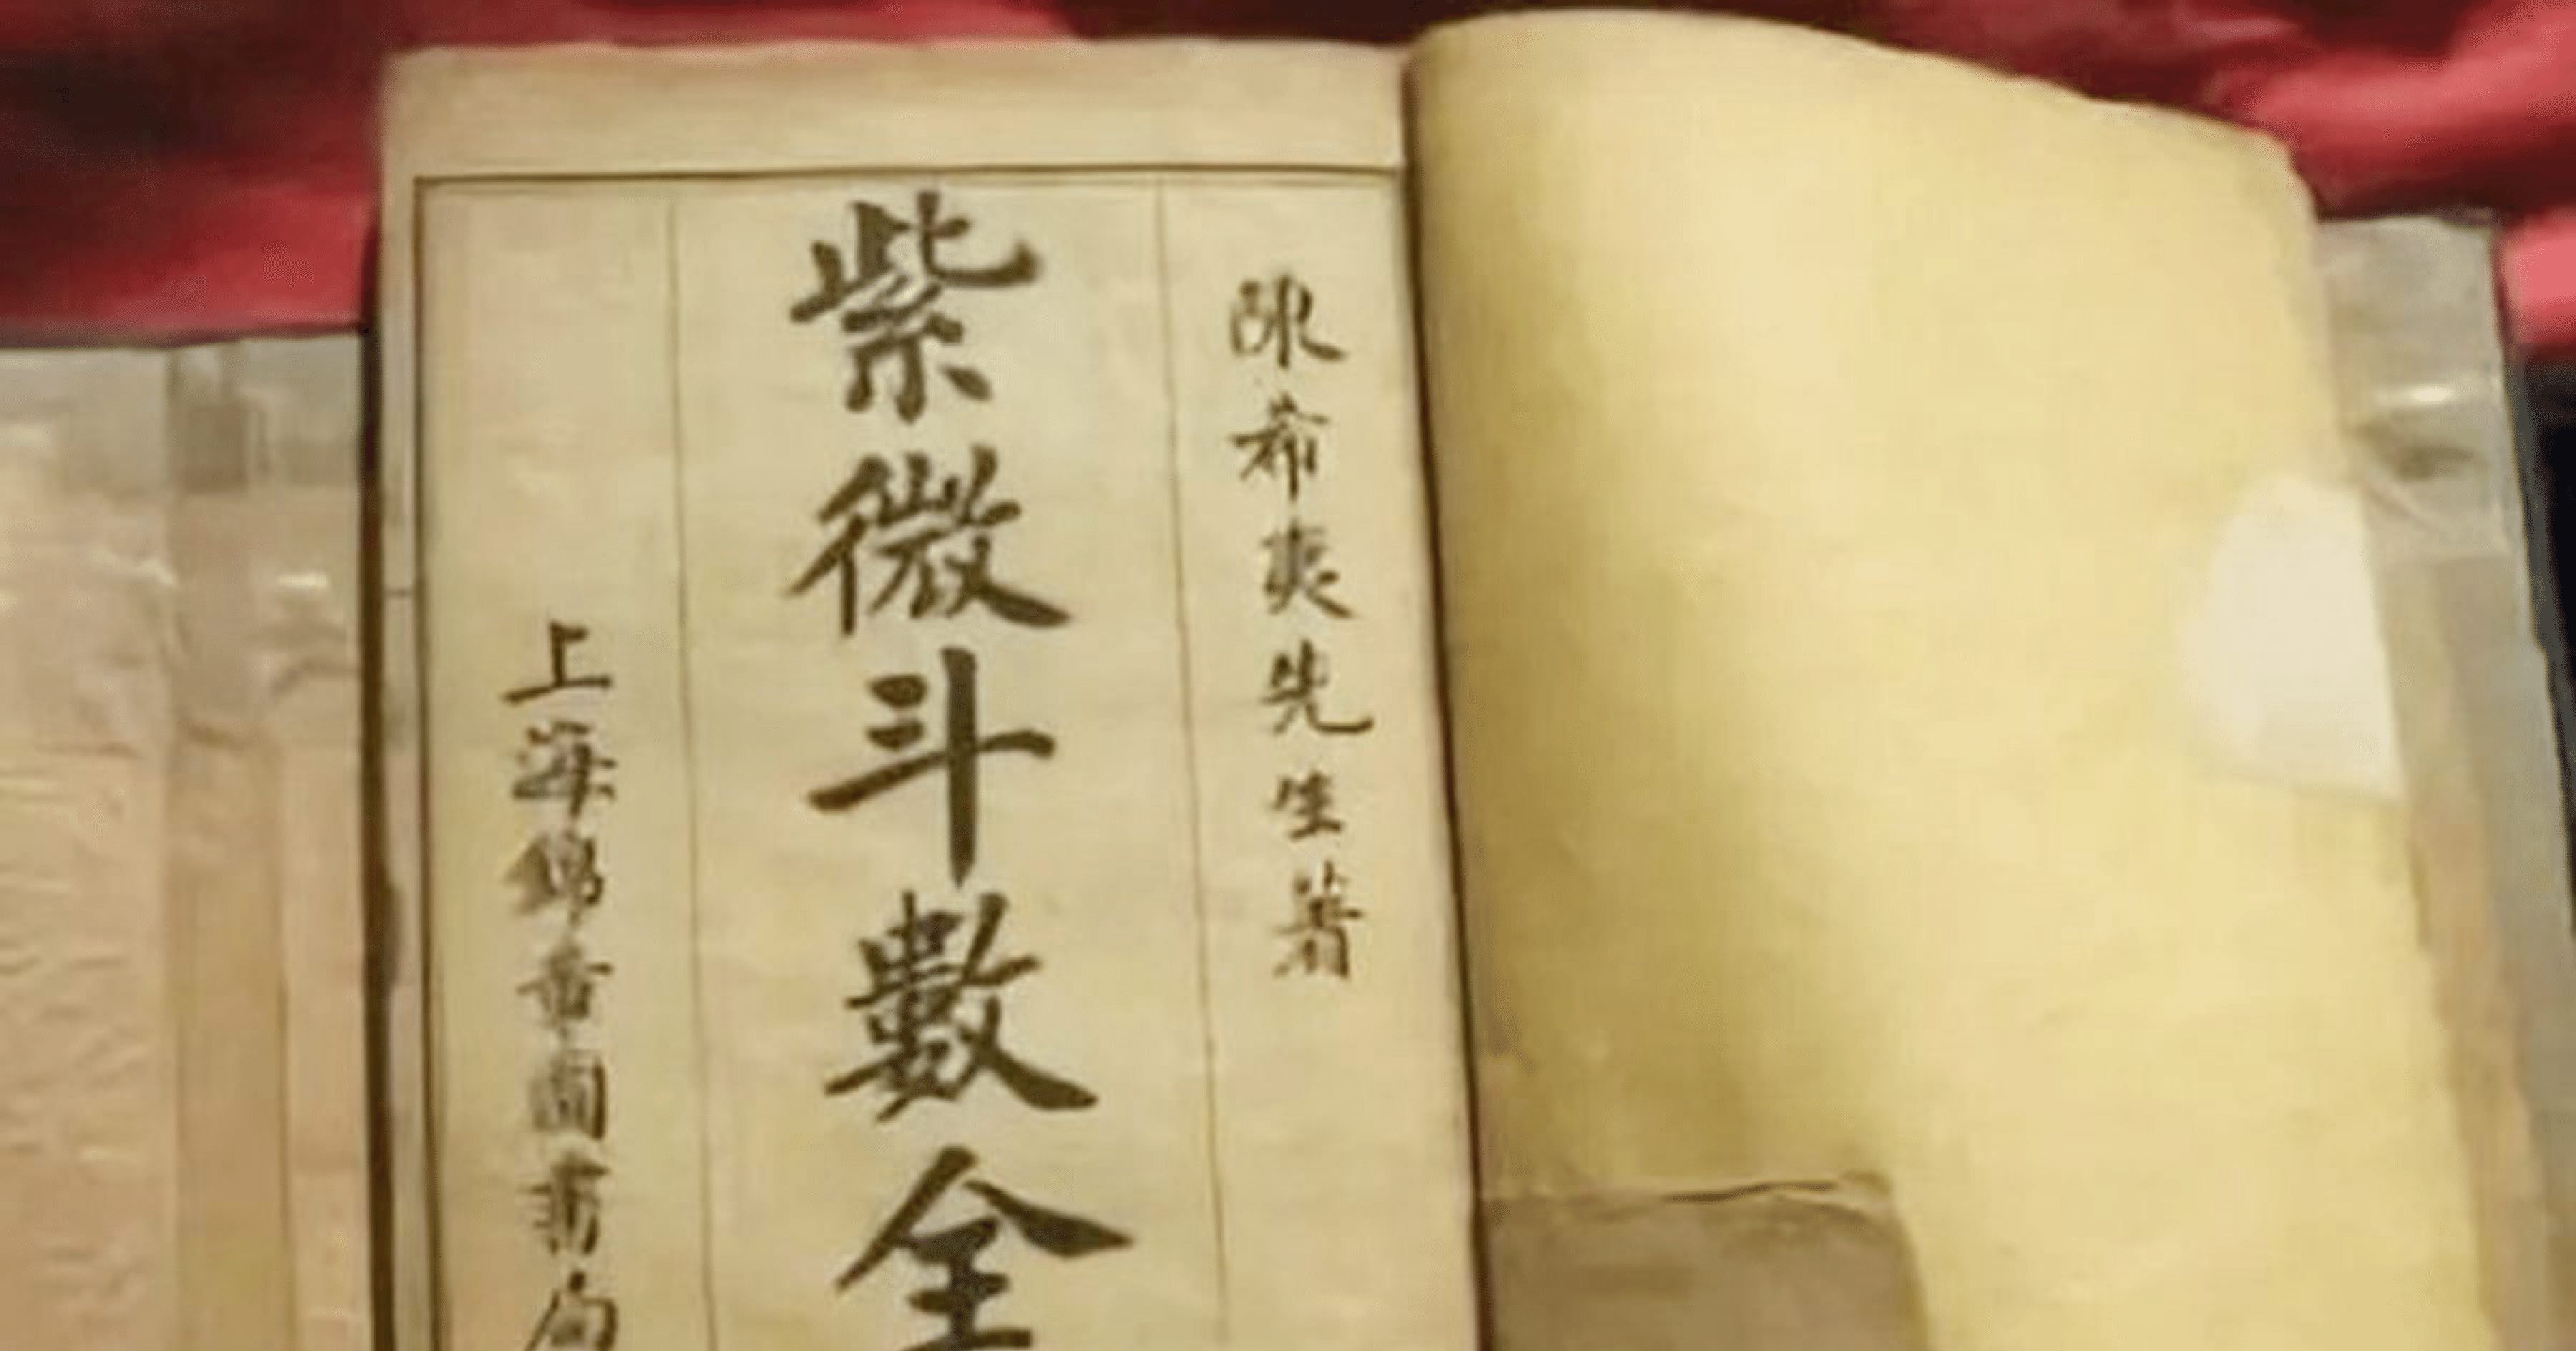 陳希夷先生著
紫微斗數全
上海錦章圖書局